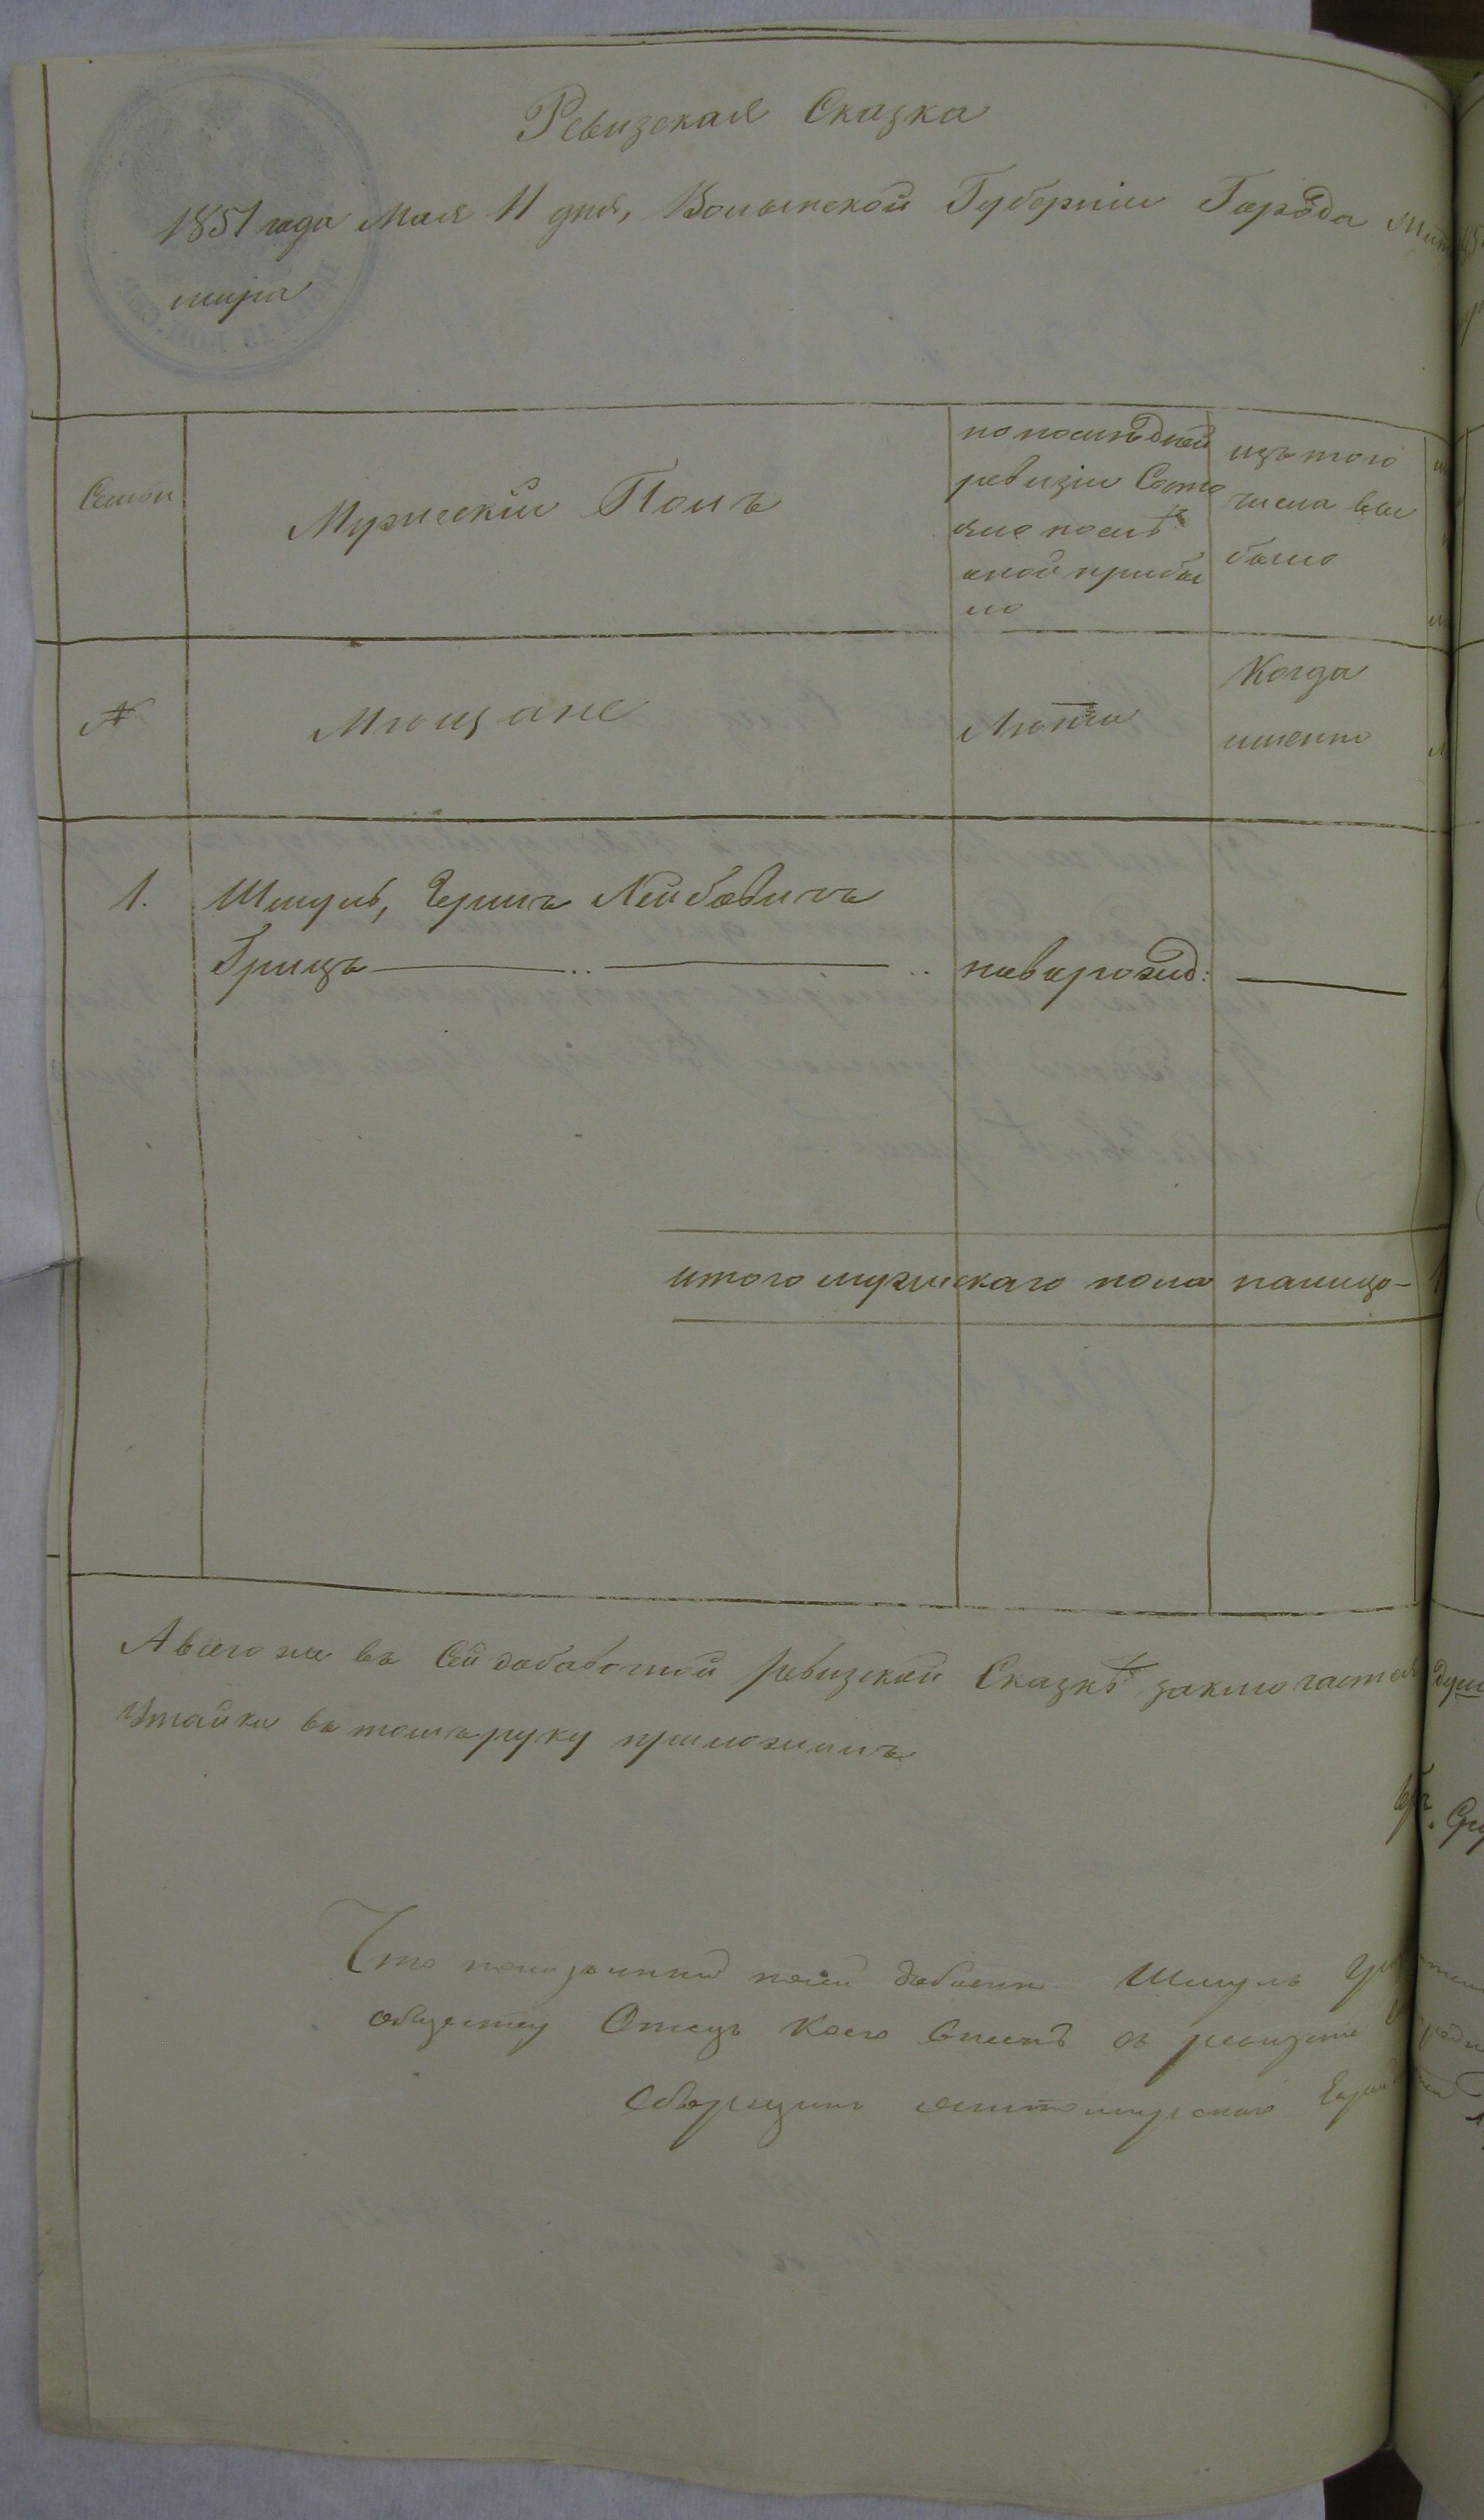 Ревизская Сказка
1851 года Мая 11 дня, Волынской Губерніи Города Жит
мира
Семьи
Мужескій Полъ
по последней
ревизіи Состо
яло после
оной прибы
ло
изъ того
числа вы
было
№
Мещане
Лета
Когда
именно
1.
Шмуль, Гершъ Лейбовичъ
Грицъ
новорожд:
итого мужескаго пола налицо 1
А всего же въ Сей добавочной ревизской Сказкѣ заключается душ
Утайки въ томъ руку приложилъ
Что показанный Шмуль
обществу Отецъ Коего
житомирскаго